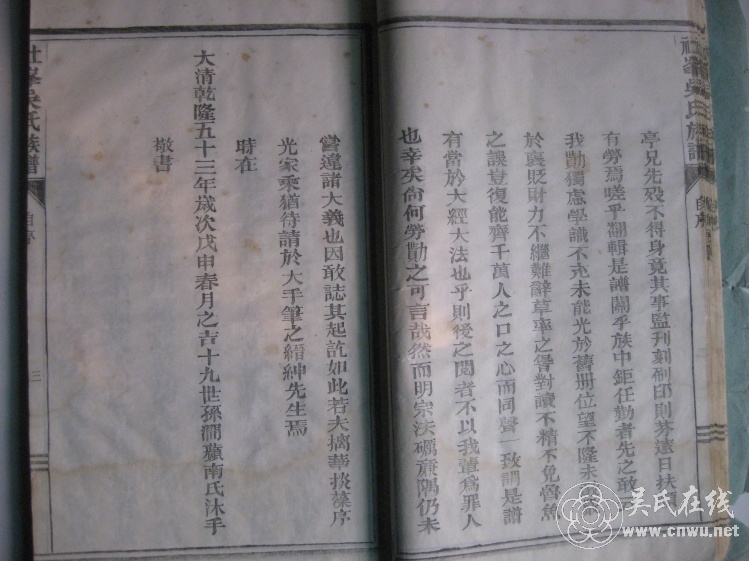 社峯吳氏族譜
自序
亭兄先殁不得身竟其事監刊刻刷印則芬遠日扶
有勞焉嗟乎翻輯是譜關乎族中鉅任勤者先之敢
我勩獨慮學識不克未能光於舊册位望不隆未
於襃貶財力不繼難辭草率之咎對讀不精不免魯魚
之誤豈復能齊千萬人之口之心而同聲一致謂是譜
有當於大經大法也乎則後之閱者不以我輩為罪人
也幸矣尙何勞勩之可言哉然而明宗法礪廉隅仍未
嘗違諸大義也因敢誌其起訖如此若夫摛華掞藻序
光家乘猶待請於大手筆之縉紳先生焉
時在
大清乾隆五十三年歲次戊申春月之吉十九世孫澗蘋南氏沐手
敬書
社峯吳氏族譜
自序
三
吴氏在线
www.cnwu.net